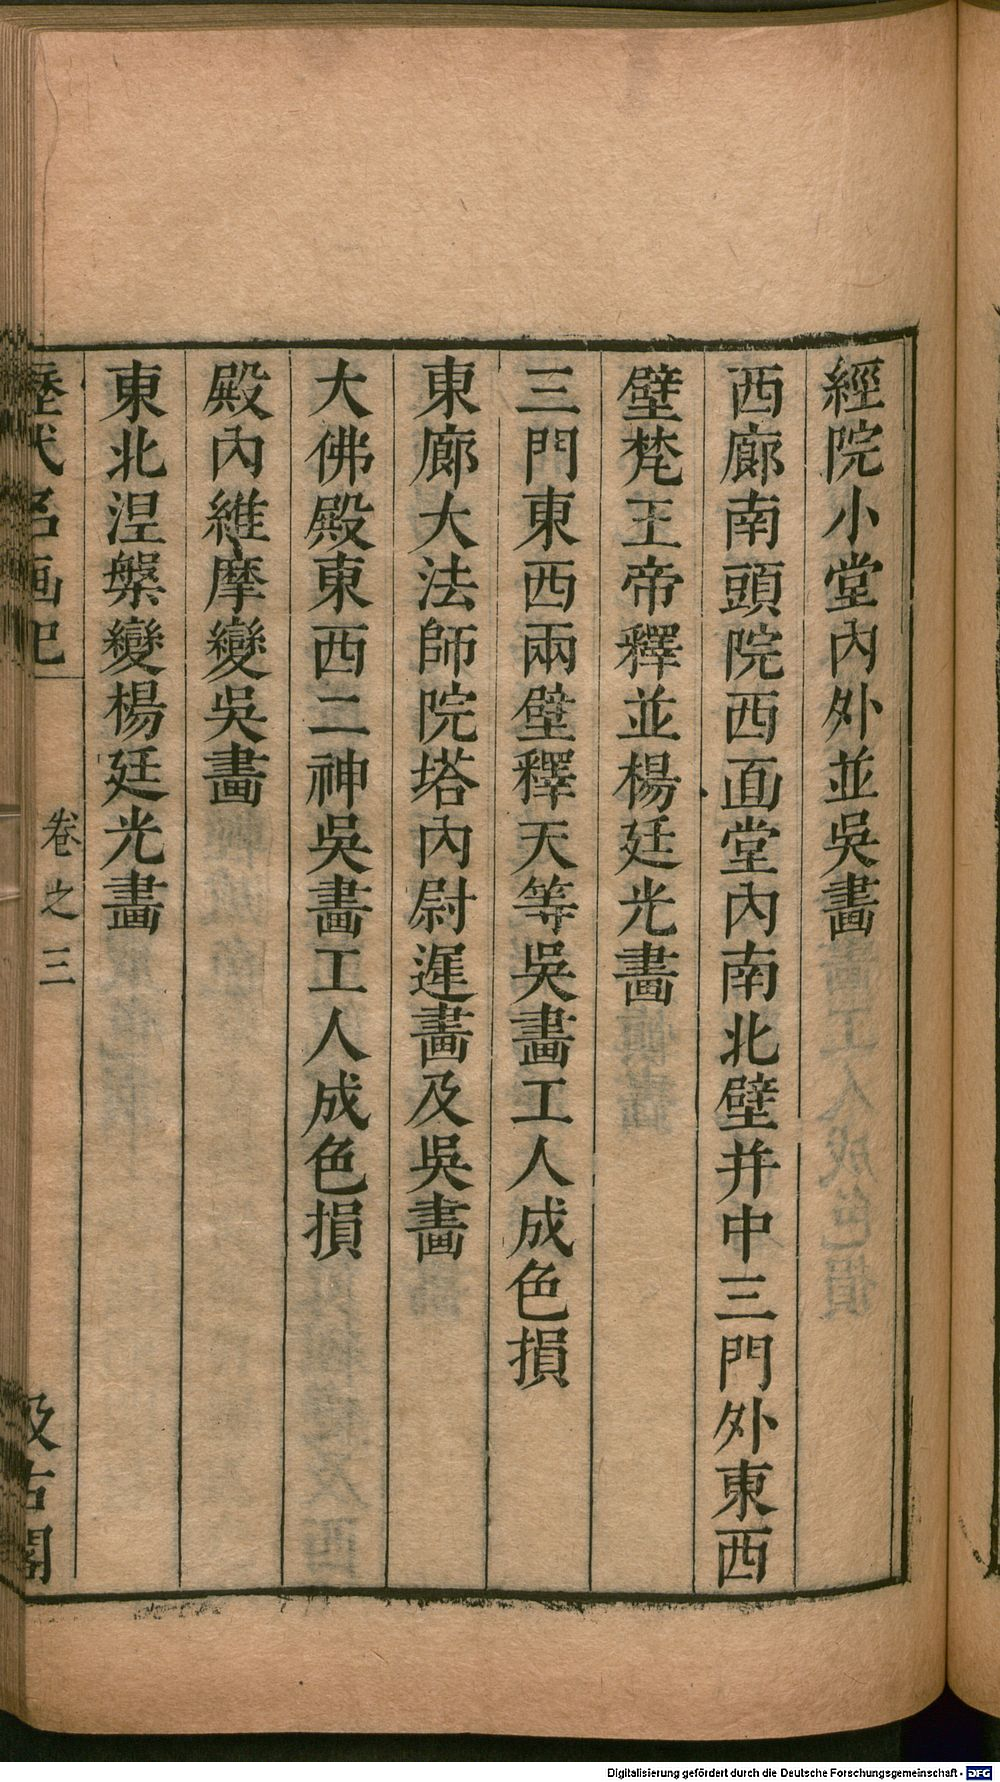 經院小堂內外並吳畫
西廊南頭院西面堂內南北壁并中三門外東西
壁梵王帝釋並楊廷光畫
三門東西兩壁釋天等吳畫工人成色損
東廊大法師院塔內尉遲畫及吳畫
大佛殿東西二神吳畫工人成色損
殿內維摩變吳畫
東北涅槃變楊廷光畫
歷代名画記
卷之三
汲古閣
Digitalisierung gefördert durch die Deutsche Forschungsgemeinschaft - DFG